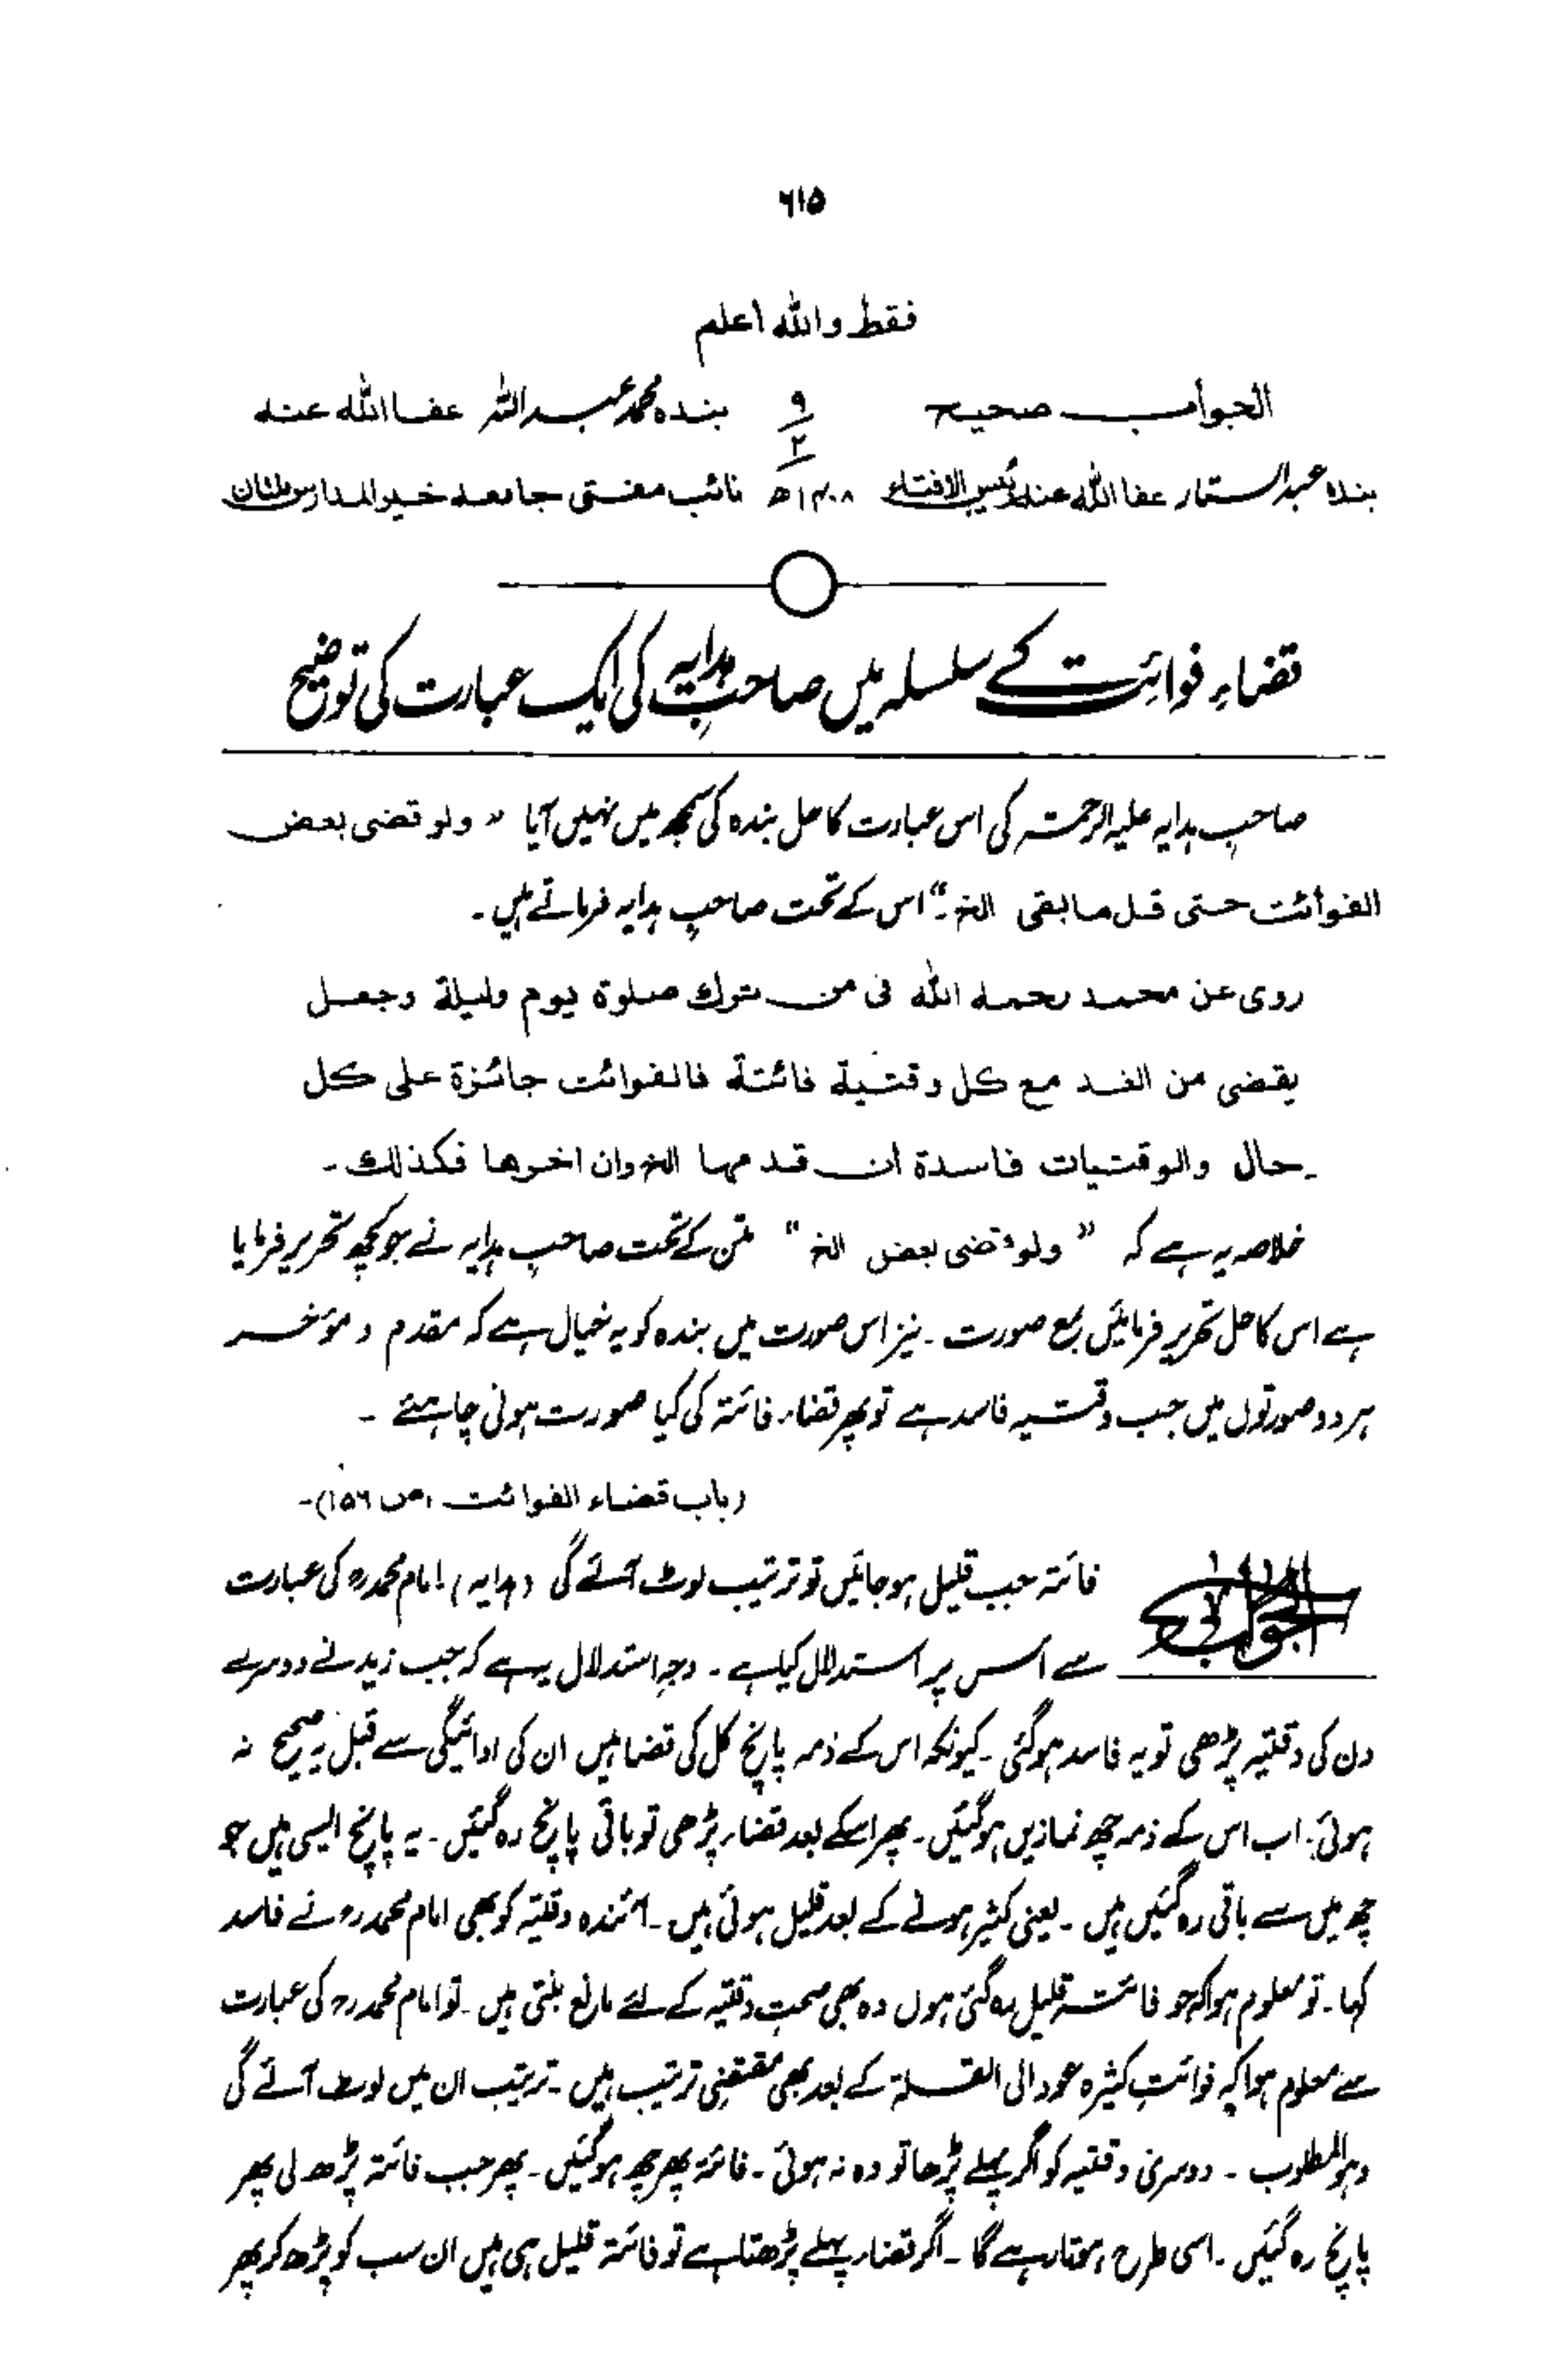 ٦١٥
فقط واللہ اعلم
الجواب صحیح ٩/٢ بندہ محمد عبداللہ عفا اللہ عنہ
بندہ عبدالستار عفا اللہ عنہ رئیس الافتاء ١٤٠٨ھ نائب مفتی جامعہ خیرالمدارس ملتان
قضاءِ فوائت کے سلسلہ میں صاحبِ ہدایہ کی ایک عبارت کی توضیح
صاحبِ ہدایہ علیہ الرحمۃ کی اس عبارت کا حل بندہ کی سمجھ میں نہیں آیا “ ولو قضی بعض
الفوائت حتی قل ما بقی الخ۔” اس کے تحت صاحبِ ہدایہ فرماتے ہیں۔
روی عن محمد رحمہ اللہ فی من ترک صلوۃ یوم ولیلۃ وجعل
یقضی من الغد مع کل وقتیۃ فائتۃ فالفوائت جائزۃ علی کل
حال والوقتیات فاسدۃ ان قدمہا الخ وان اخرھا فکذلک۔
خلاصہ یہ ہے کہ “ ولو قضی بعض الخ ” متن کے تحت صاحبِ ہدایہ نے جو کچھ تحریر فرمایا
ہے اس کا حل تحریر فرمائیں بمع صورت۔ نیز اس صورت میں بندہ کو یہ خیال ہے کہ مقدم و مؤخر
ہر دو صورتوں میں جب وقتیہ فاسد ہے تو پھر قضاء فائتہ کی کیا صورت ہونی چاہئے ۔
(باب قضاء الفوائت ، ص ١٥٦)۔
الجواب فائتہ جب قلیل ہو جائیں تو ترتیب لوٹ آئے گی (ہدایہ) امام محمدؒ کی عبارت
سے اس پر استدلال کیا ہے ۔ وجہِ استدلال یہ ہے کہ جب زید نے دوسرے
دن کی وقتیہ پڑھی تو یہ فاسد ہو گئی ۔ کیونکہ اس کے ذمہ پانچ کل کی قضا ہیں ان کی ادائیگی سے قبل یہ صحیح نہ
ہوئی ۔ اب اس کے ذمہ چھ نمازیں ہو گئیں ۔ پھر اسکے بعد قضاء پڑھی تو باقی پانچ رہ گئیں ۔ یہ پانچ ایسی ہیں جو
چھ میں سے باقی رہ گئیں ہیں ۔ یعنی کثیر ہونے کے بعد قلیل ہوئی ہیں ۔ آئندہ وقتیہ کو بھی امام محمدؒ نے فاسد
کہا ۔ تو معلوم ہوا کہ جو فائتہ قلیل رہ گئی ہوں وہ بھی صحتِ وقتیہ کے لئے مانع بنتی ہیں ۔ تو امام محمدؒ کی عبارت
سے معلوم ہوا کہ فوائتِ کثیرہ عود الی القلۃ کے بعد بھی مقتضیِ ترتیب ہیں ۔ ترتیب ان میں لوٹ آئے گی
وہو المطلوب ۔ دوسری وقتیہ کو اگر پہلے پڑھا تو وہ نہ ہوئی ۔ فائتہ پھر چھ ہو گئیں ۔ پھر جب فائتہ پڑھ لی پھر
پانچ رہ گئیں ۔ اسی طرح ہوتا رہے گا ۔ اگر قضاء پہلے پڑھتا ہے تو فائتہ قلیل ہی ہیں ان سب کو پڑھ کر پھر